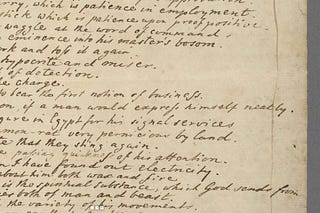 which is patience in employment.
stick which is patience upon proof positive.
waggle at the word of command
eminence into his master's bosom.
cork and toss it again.
hypocrite and miser.
of detection.
the charge.
to bear the first notion of business.
on, if a man would express himself neatly.
gure in Egypt for his signal services
mon-rat very pernicious by land.
te that they sting again.
quickness of his attention.
n I have found out electricity.
about him both wax and fire
is the spiritual substance, which God sends from
in both of man and beast.
the variety of his movements.